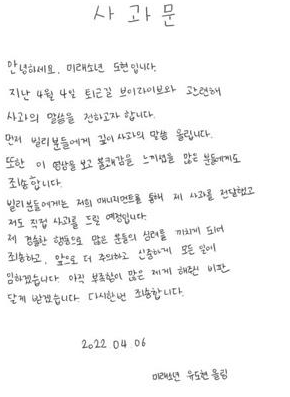 사과문
안녕하세요. 미래소년 도현입니다.
지난 4월 4일 퇴근길 브이라이브와 관련해
사과의 말씀을 전하고자 합니다.
먼저 빌리분들에게 깊이 사과의 말씀 올립니다.
또한 이 영상을 보고 불쾌감을 느끼셨을 많은 분들에게도
죄송합니다.
빌리분들에게는 저희 매니지먼트를 통해 제 사과를 전달했고
저도 직접 사과를 드릴 예정입니다.
제 경솔한 행동으로 많은 분들의 심려를 끼치게 되어
죄송하고, 앞으로 더 주의하고 신중하게 모든 일에
임하겠습니다. 아직 부족함이 많은 제게 해주신 비판
달게 받겠습니다. 다시한번 죄송합니다.
2022 04. 06
미래소년 유도현 올림